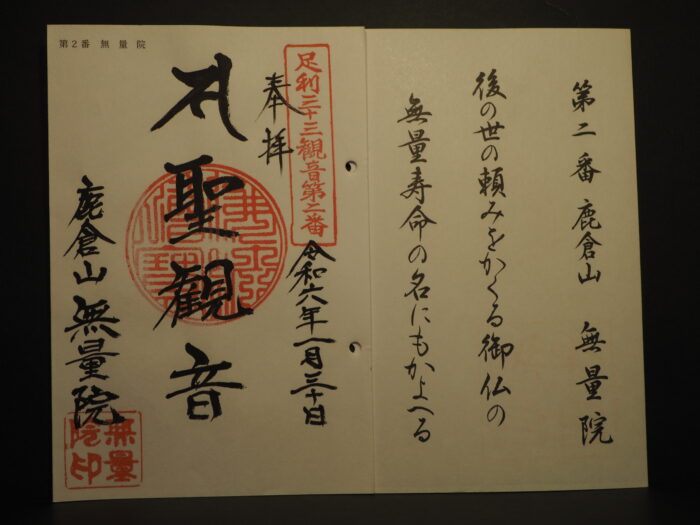 第二番 鹿倉山 無量院
後の世の頼みをかくる御仏の
無量寿命の名にもかよへる
足利三十三観音第二番
奉拝
令和六年一月三十日
聖観音
鹿倉山 無量院
無量院印
第2番 無量院